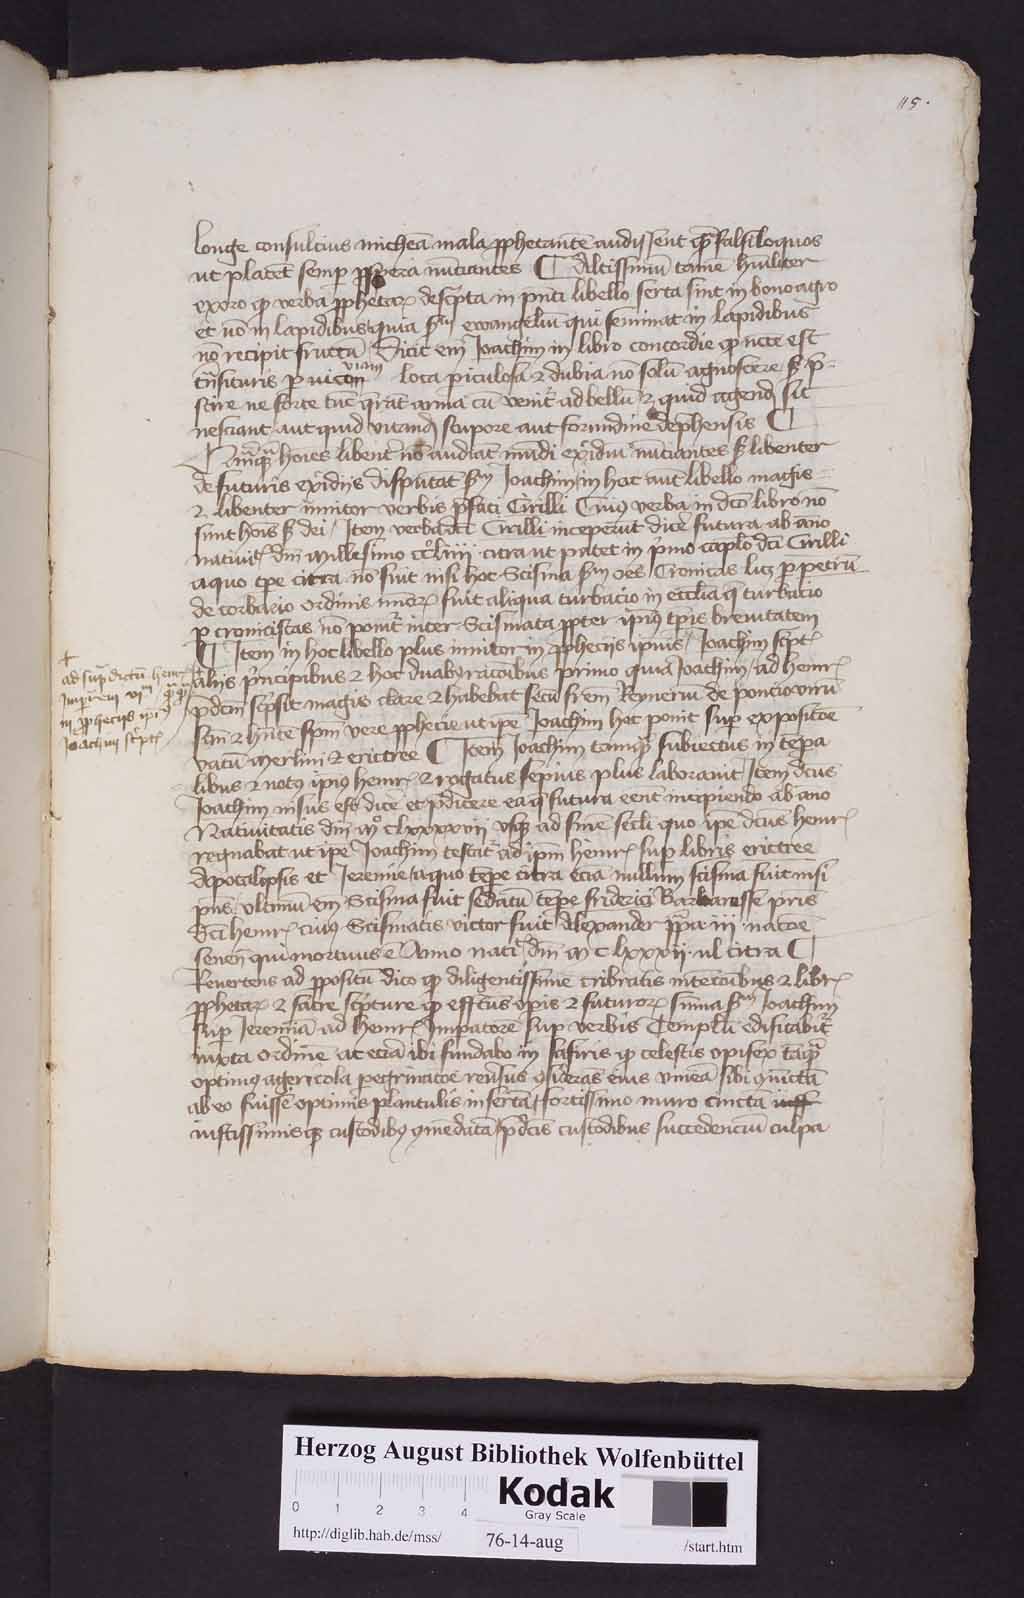 115.
longe consulcius micheā mala ꝓphetantē audissent qᷓ falsiloquos
ut placet semꝑ ꝓspera nūciantes ¶ Altissimū tamē hūiliter
exoro ꝙ verba ꝓphetaꝝ descͥpta in pn̄ti libello serta sint in bono agro
et nō in lapidibus quia scᵈm ewangeliū qui seminat in lapidibus
nō recipit fructū Dicit em̄ Joachim in libro concordie ꝙ necē est
tn̄situris ꝑ viam loca ꝑiculosa ⁊ dubia nō solū agnoscere sꝫ p̄-
scire ne forte tūc qͣrāt arma cū venit̄ ad bellū ⁊ quid agendū sit
nesciant aut quid vitandū stupore aut formidine dep̄hensis ¶
Qᷓmqᷓ hoīes libent̄ nō audiāt mūdi excidiū nūciantes sꝫ libenter
de futuris excidijs disputāt scᵈm Joachim in hoc aūt libello magis
⁊ libenter innitor verbis p̄fati Cirilli Cuiꝰ verba in dc̄o libro nō
sunt hoīs sꝫ dei / Item verba dc̄i Cirilli inceperūt dicē futura ab ān̄o
nativitͭ dn̄i Millesimo ccͦ liiii citra ut patet in pͥmo capl̄o dc̄i Cirilli
a quo tp̄e citra nō fuit nisi hoc Scisma scᵈm oēs Cronicas licꝫ ꝑ petrū
de corbario ordinis mīoꝝ fuit aliqua turbacio in eccl̄ia q̄ turbacio
ꝑ cronicistas nō ponit̄ inter Scismata ꝓpter ipīꝰ tp̄is brevitatem
¶ Item in hoc libello plus innitor in ꝓpheciis ipius / Joachim scͥptꝭ
+ ad supͣdictū henr̄
Imꝑatorem
in ꝓpheciis ipīꝰ
Joachim scͥptꝭ
aliis pͥncipibus ⁊ hoc duabꝰ racōibus primo quia Joachim / ad henr̄
p̄dcm̄ scͥpsit magis clare ⁊ habebat secū fr̄em Reyneriū de poncio virū
scm̄ ⁊ hn̄tē spm̄ vere ꝓphecie ut ipē Joachim hoc ponit suꝑ exposicōe
vatū Merlini ⁊ erictree ¶ Item Joachim tamqᷓ subiectus in tēpa
libus ⁊ notꝰ ipīꝰ henr̄ ⁊ rogatus sepius plus laboravit / Item dc̄us
Joachim nisus est dicē et p̄dicere ea q̄ futura eēnt incipiendo ab āno
Nativitatis dn̄i Mͦ clxxxxvii vsqꝫ ad finē sec̄li quo ipē dc̄us henr̄
regnabat ut ipē Joachim testat̄ ad ipm̄ henr̄ sup libris erictree
Apocalipsis et Jeremie / a quo tp̄e citra eciā nullum scisma fuit nisi
pn̄s / Vltimū em̄ Scisma fuit sedatū tp̄e friderici Barbarosse pr̄is
dc̄i henr̄ cuiꝰ Scismatis victor fuit Alexander pᷓpa iii nacōe
senen̄ qui mortuus ē Anno natͭ dn̄i M c lxxxii vl citra ¶
Revertens ad ꝓpositū dico ꝙ diligentissime cribratis intēcōibus ⁊ libr̄
ꝓphetaꝝ ⁊ sacre scͥpture ꝙ effctus opis ⁊ futuroꝝ sūma scᵈm Joachim
suꝑ Jeremiā ad henr̄ Imꝑatorē suꝑ verbis Templū edificabit̄
iuxta ordinē ac eciā ibi fundabo in safiris ꝙ celestis opifex tāqᷓ
optimꝰ agricola pegrinacōe rev̄sus ꝯsiderās eius vineā sibi ꝯiūctā
ab eo fuisse optimis plantulis insertā / fortissimo muro cinctā iust
iustissimisqꝫ custodibꝰ ꝯmēdatā / p̄dc̄is custodibus succedenciū culpa
Herzog August Bibliothek Wolfenbüttel
0 1 2 3 4
Kodak
Gray Scale
http://diglib.hab.de/mss/ 76-14-aug /start.htm